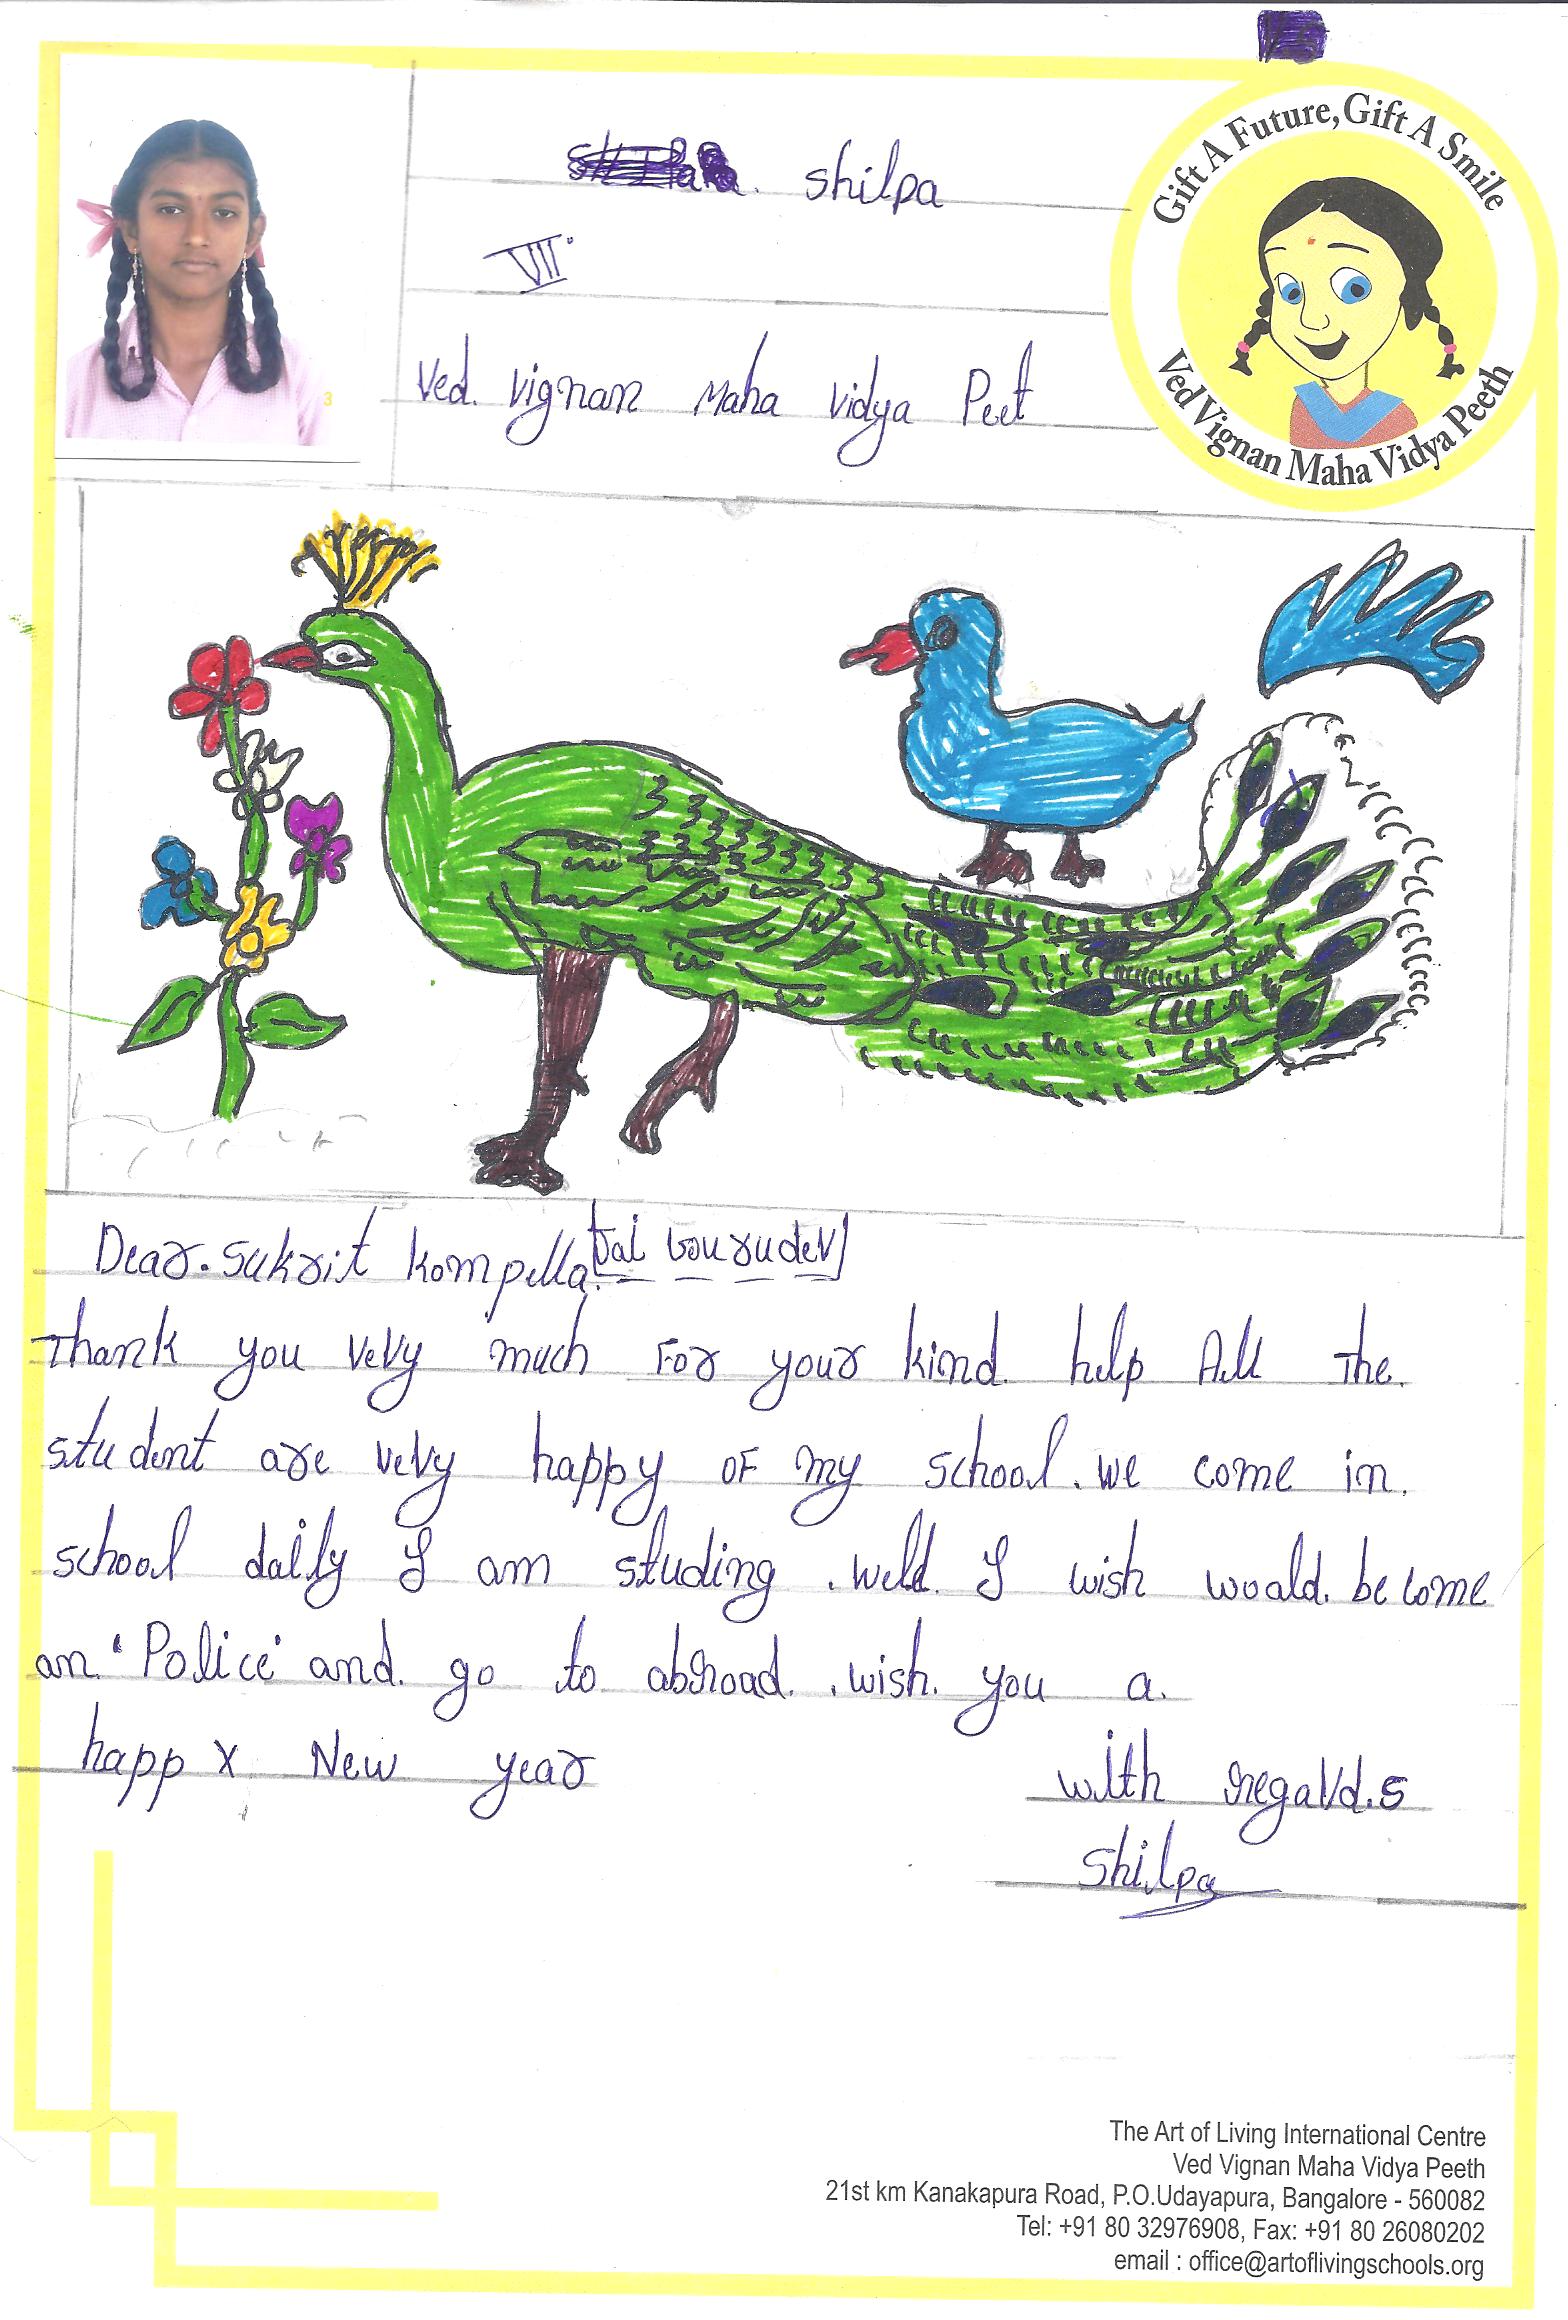 Shilpa
VII
Ved. Vignan Maha Vidya Peet
Gift A Future, Gift A Smile
Ved Vignan Maha Vidya Peeth
3
Dear. Sukrit Kompella. [Jai Gourudev]
Thank you very much For your kind. help All The.
student are very happy OF my school. we come in.
school daily I am studing. well. I wish woald. become
an. 'Police' and. go to abroad. . wish. you a.
happ x New year
with regard.s
Shilpa
The Art of Living International Centre
Ved Vignan Maha Vidya Peeth
21st km Kanakapura Road, P.O.Udayapura, Bangalore - 560082
Tel: +91 80 32976908, Fax: +91 80 26080202
email : office@artoflivingschools.org